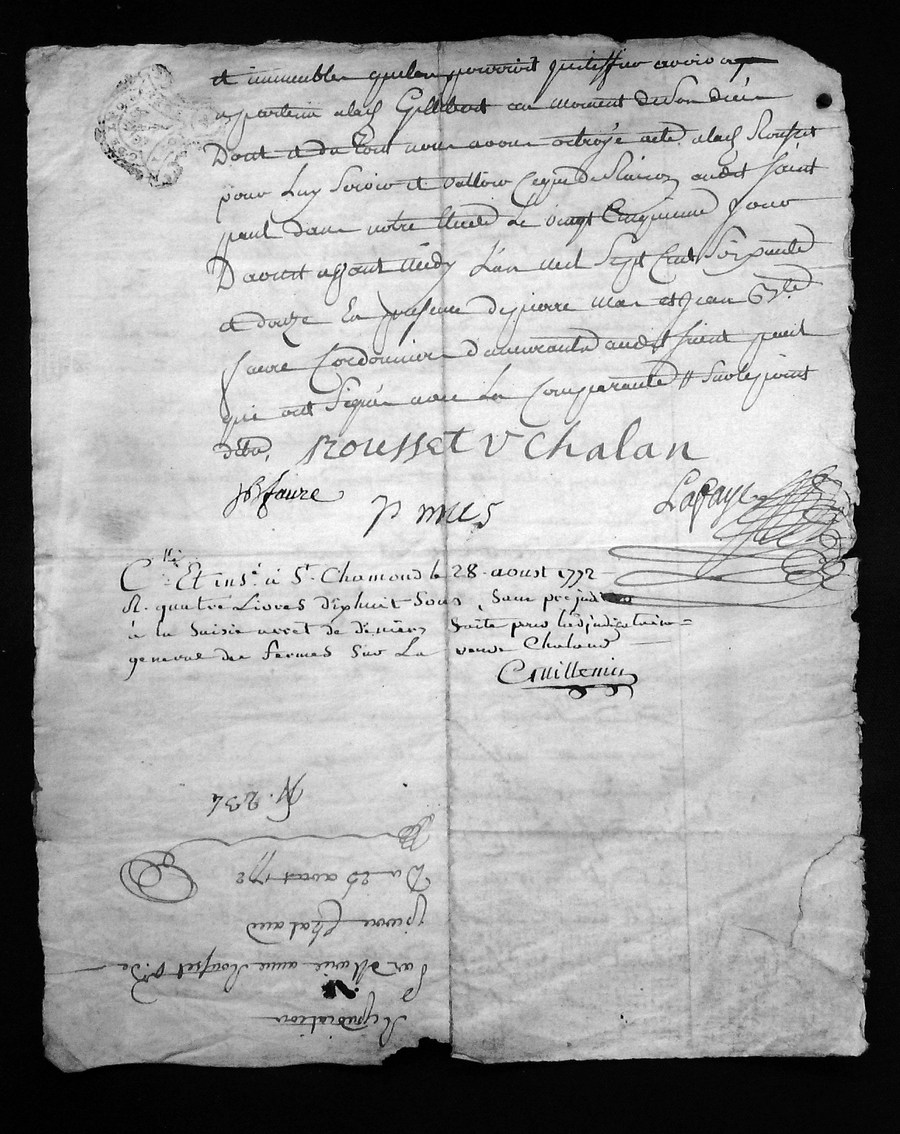 et immeubles quelon pourroit
apartenir alad Gillibert au moment de son deces
Dont et du tout nous avons octroyé acte aladt Rousset
pour Luy servir et valloir Ceque de Raison audit saint
paul dans notre étude Le vingt Cinquieme Jour
D'aoust avant midy L'an mil sept Cent soixante
et douze En presence de pierre mas et Jean Bte
faure Cordonnier demeurants audit saint paul
qui ont signé avec La Comparante //
Rousset ve Chalan
JB faure
P mus
Lafay
Clli Et insé à St Chamond le 28 aoust 1772
R. quatre Livres dixhuit Sous, Sans prejudice
à la Saisie arret de deniers faite pour l'adjudicataire =
general des fermes Sur La veuve Chaland
Guillemin
Repudiation
Par Marie anne Rousset Ve de
pierre Chaland
Du 25 aoust 1772
N. 234